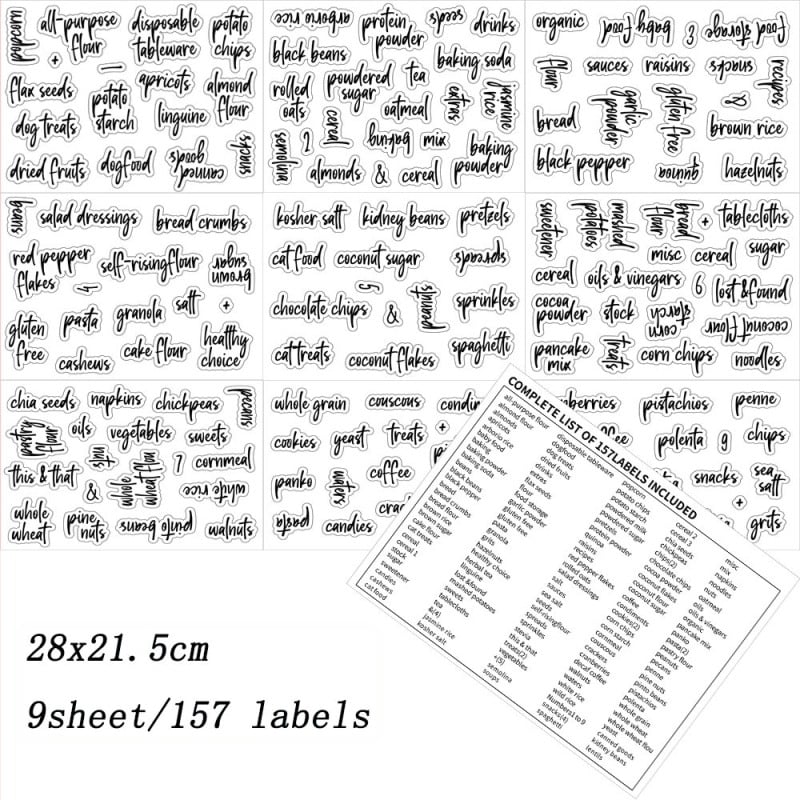 popcorn
all-purpose
flour
disposable
tableware
potato
chips
+
1
flax seeds
potato
starch
apricots
almond
flour
dog treats
linguine
dried fruits
dogfood
canned
goods
snacks
arborio rice
protein
powder
seeds
drinks
black beans
baking soda
rolled
oats
powdered
sugar
tea
oatmeal
extras
jasmine
rice
semolina
2
cereal
baking
mix
baking
powder
almonds
&
cereal
organic
baby food
3
food storage
flour
sauces
raisins
snacks
recipes
bread
garlic
powder
gluten free
&
brown rice
black pepper
quinoa
hazelnuts
beans
salad dressings
bread crumbs
red pepper
flakes
4
self-risingflour
brown
sugar
gluten
free
pasta
granola
salt
+
cashews
cake flour
healthy
choice
kosher salt
kidney beans
pretzels
cat food
coconut sugar
spreads
5
chocolate chips
&
peanuts
sprinkles
cat treats
coconut flakes
spaghetti
sweetener
mashed
potatoes
bread
flour
+
tablecloths
misc
cereal
sugar
cereal
oils & vinegars
6
lost &found
cocoa
powder
stock
corn
starch
coconut flour
pancake
mix
treats
corn chips
noodles
chia seeds
napkins
chickpeas
pecans
pastry
flour
oils
vegetables
sweets
this & that
nuts
7
cornmeal
&
whole
wheat flou
white rice
whole
wheat
pine
nuts
pinto beans
walnuts
whole grain
couscous
cookies
yeast
treats
+
panko
waters
coffee
pasta
candies
pistachios
penne
polenta
9
chips
snacks
sea
salt
+
grits
COMPLETE LIST OF 157LABELS INCLUDED
all-purpose flour
almond flour
almonds
apricots
arborio rice
baby food
baking
baking powder
baking soda
beans
black beans
black pepper
bread
bread crumbs
bread flour
brown rice
brown sugar
cake flour
cat treats
cereal 1
stock
sugar
sweetener
candies
cashews
cat food
disposable tableware
dogfood
dog treats
dried fruits
drinks
extras
flax seeds
flour
food storage
garlic powder
gluten free
gluten free
pasta
granola
grits
hazelnuts
healthy choice
herbal tea
linguine
lost &found
mashed potatoes
sweets
tablecloths
tea
&(4)
jasmine rice
kosher salt
popcorn
potato chips
potato starch
powdered milk
powdered sugar
pretzels
protein powder
quinoa
raisins
recipes
red pepper flakes
rolled oats
salad dressings
salt
sauces
sea salt
seeds
self risingflour
spreads
sprinkles
stevia
this & that
treats(2)
vegetables
+(5)
semolina
soups
cereal 2
cereal 3
chia seeds
chickpeas
chips
chocolate chips
cocoa powder
coconut flakes
coconut flour
coconut sugar
coffee
condiments
cookies(2)
corn chips
corn starch
cornmeal
couscous
crackers
cranberries
decaf coffee
walnuts
waters
white rice
wild rice
Numbers1 to 9
snacks(4)
spaghetti
misc
mix
napkins
noodles
nuts
oatmeal
oils
oils & vinegars
organic
pancake mix
panko
pasta(2)
pastry flour
peanuts
pecans
penne
pine nuts
pinto beans
pistachios
polenta
whole grain
whole wheat
whole wheat flou
yeast
canned goods
kidney beans
lentils
28x21.5cm
9sheet/157 labels